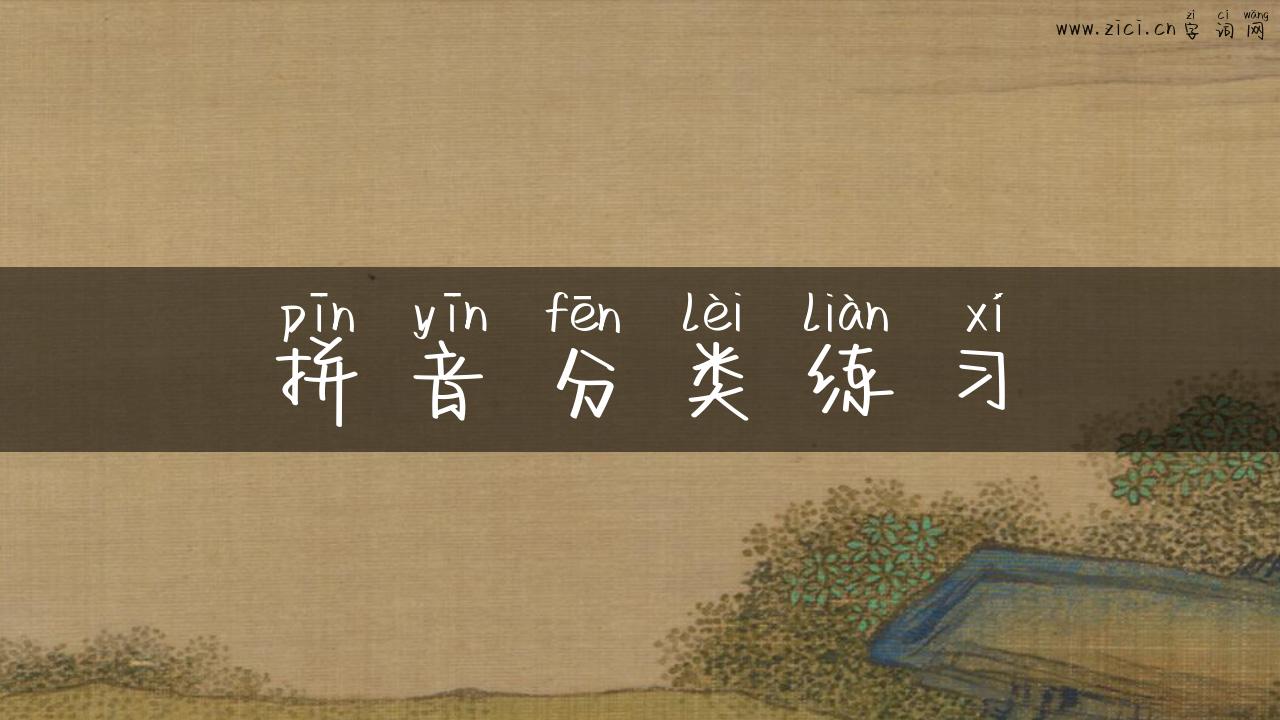 zì cí wǎng
www.zici.cn 字 词 网
pīn yīn fēn lèi liàn xí
拼 音 分 类 练 习